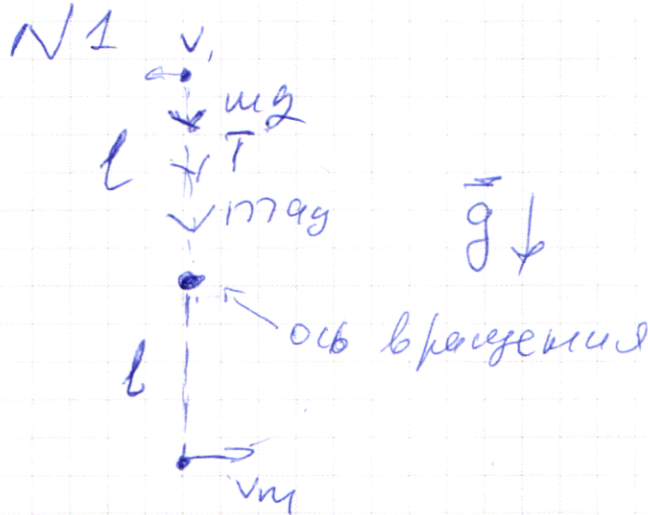 N1
v₁
mg
T
l
maц
g
ось вращения
l
vm